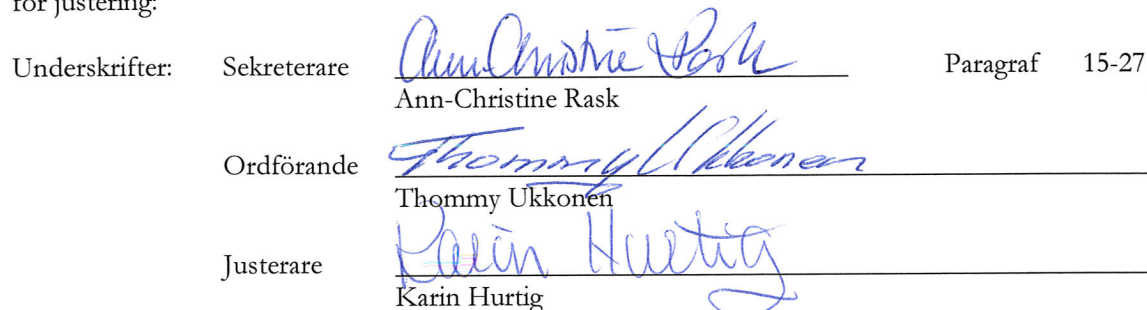 för justering:
Underskrifter: Sekreterare Ann Christine Rask Paragraf 15-27
Ann-Christine Rask
Ordförande Thommy Ukkonen
Thommy Ukkonen
Justerare Karin Hurtig
Karin Hurtig